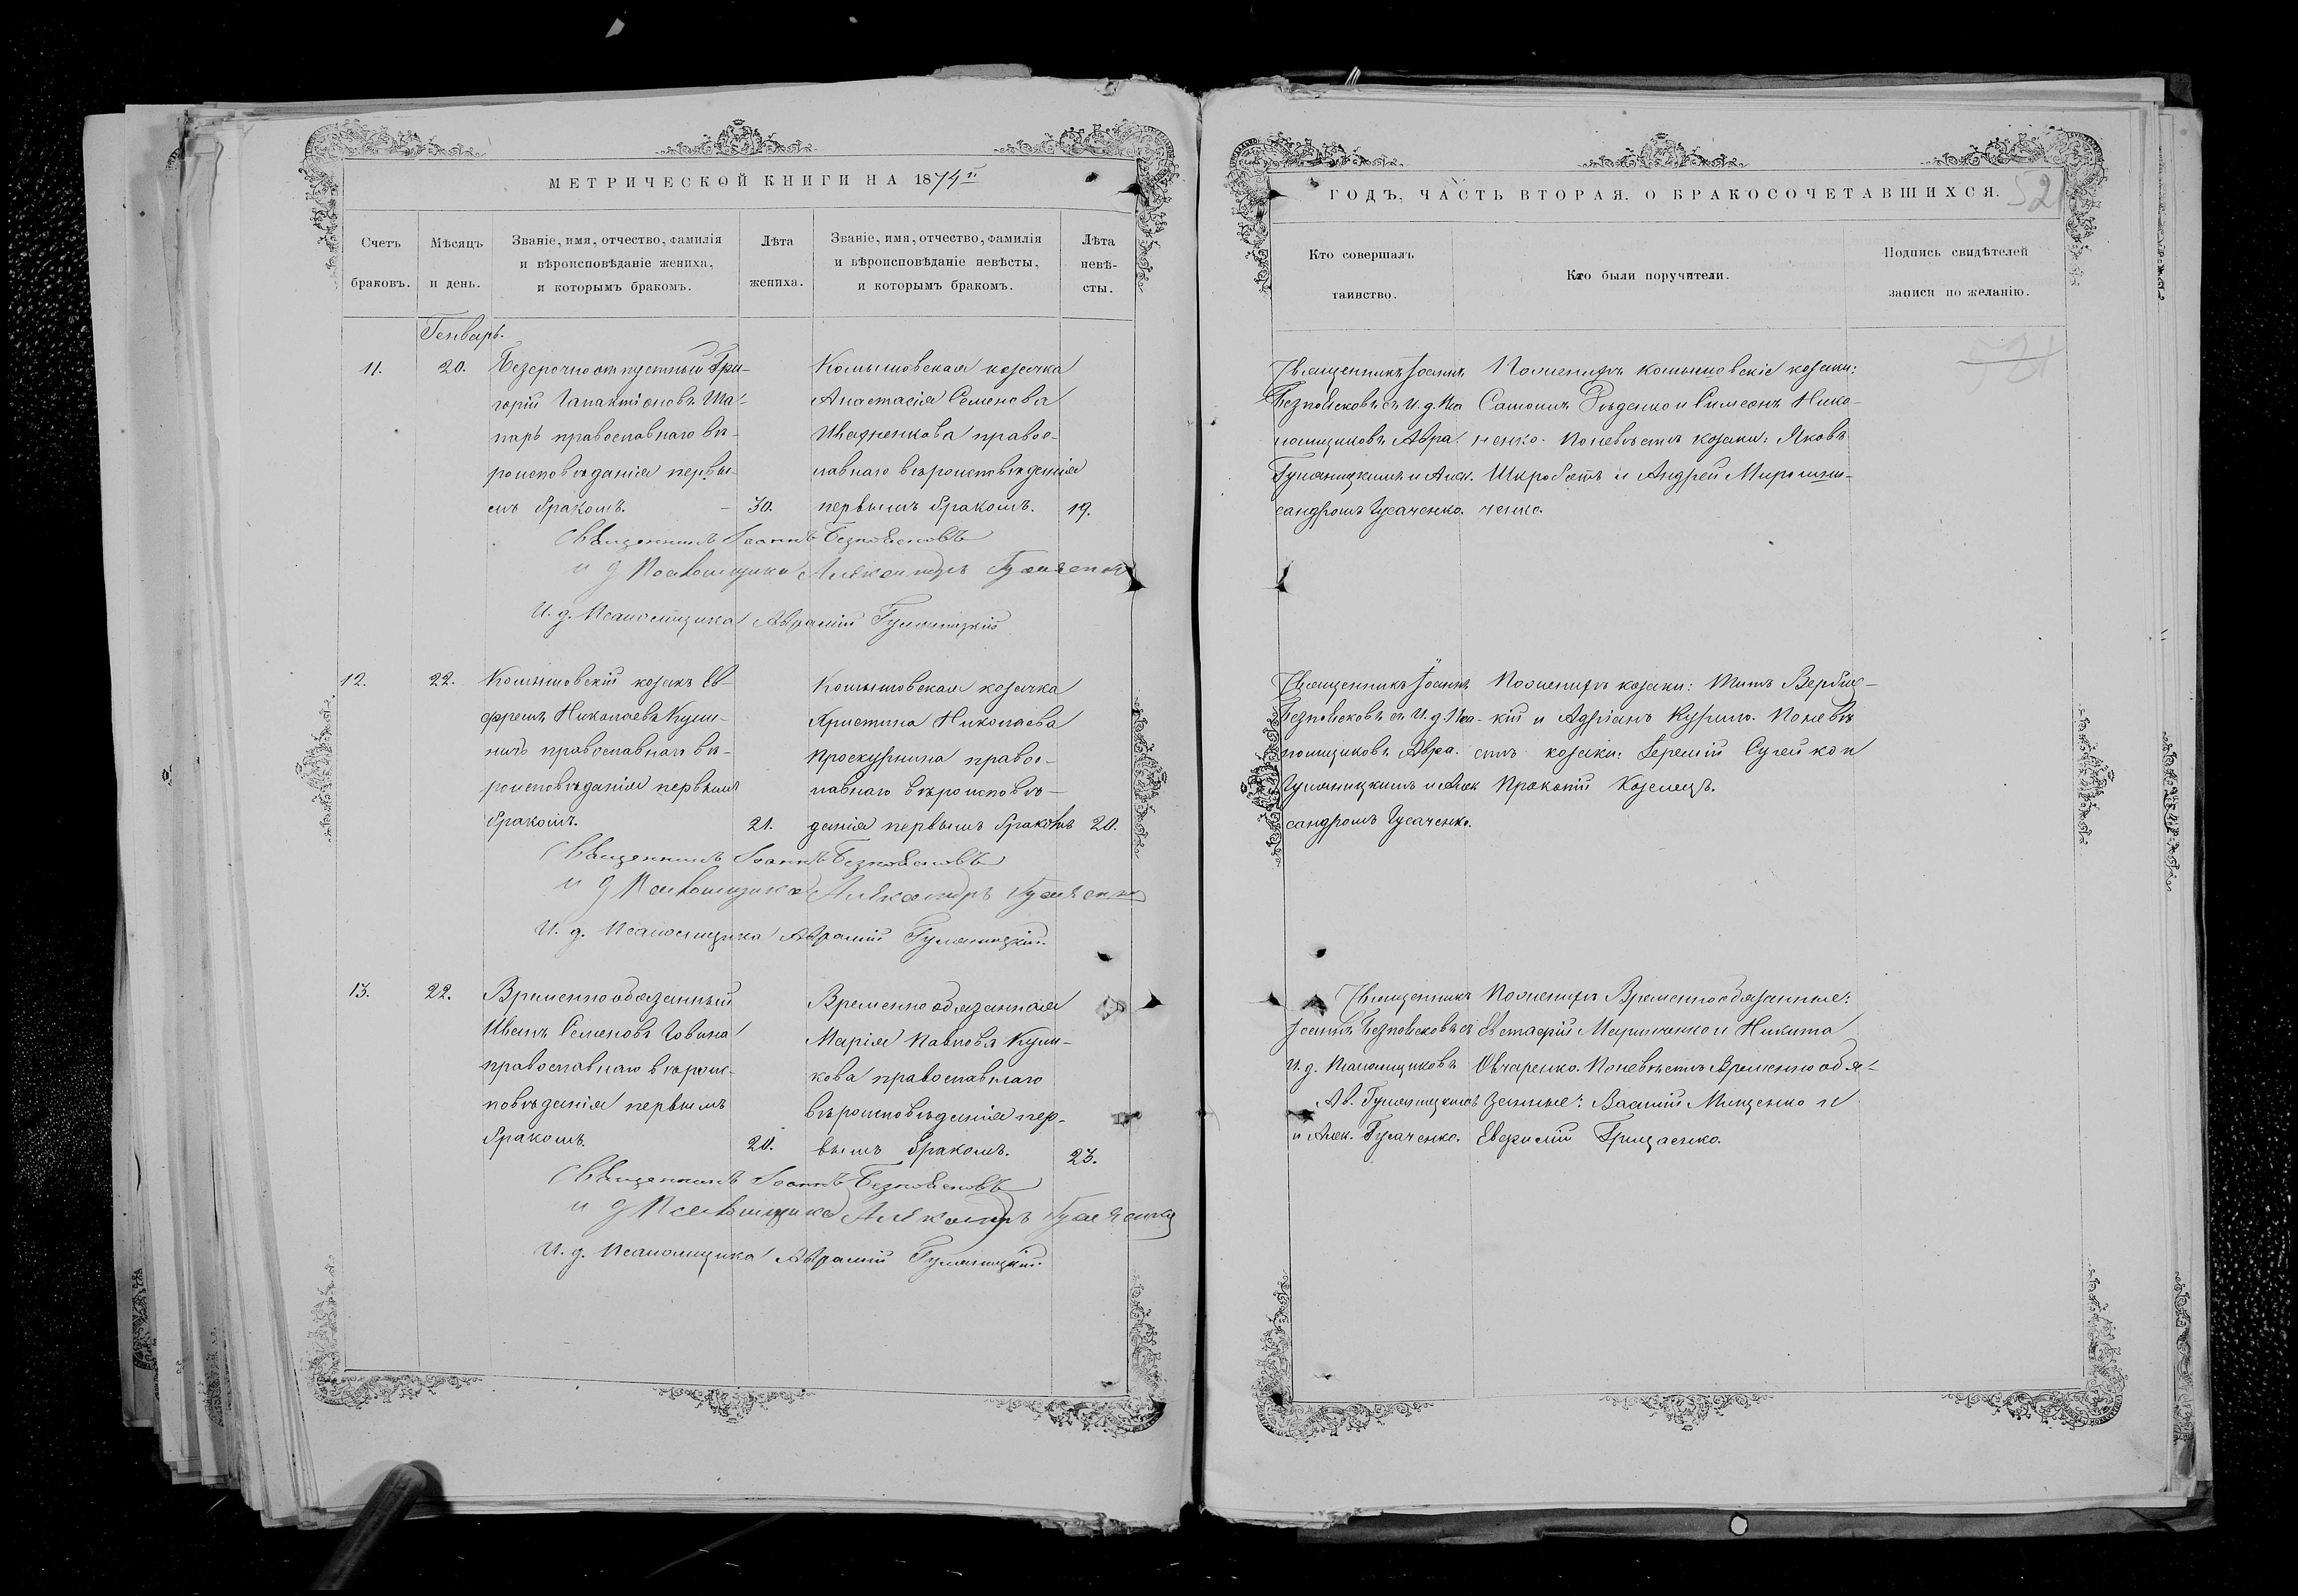 МЕТРИЧЕСКОЙ КНИГИ НА 1874й
Счетъ браковъ.
Мѣсяцъ и день.
Званіе, имя, отчество, фамилія
и вѣроисповѣданіе жениха,
и которымъ бракомъ.
Лѣта жениха.
Званіе, имя, отчество, фамилія
и вѣроисповѣданіе невѣсты,
и которымъ бракомъ.
Лѣта невѣ-
сты.
Генварь.
11.
20.
Безсрочноотпустный Гри-
горій Галактіоновъ Ша-
паръ православнаго вѣ-
роисповѣданія первы-
мъ бракомъ.
30.
Комышовская козачка
Анастасія Семенова
правос-
лавнаго вѣроисповѣданія
первымъ бракомъ.
19.
Священникъ Іоаннъ Безпоясковъ
и д Псаломщика Александръ Гусаченко
И. д. Псаломщика Аврамій Гуляницкій
12.
22.
Комышовскій козакъ Еv-
фремъ Николаевъ
православнаго вѣ-
роисповѣданія первымъ
бракомъ.
21.
Комышовская козачка
Христина Николаева
Проскурнина правос-
лавнаго вѣроисповѣ-
данія первымъ бракомъ
20.
Священникъ Іоаннъ Безпоясковъ
и д Псаломщика Александръ Гусаченко
И. д. Псаломщика Аврамій Гуляницкій.
13.
22.
Временнообязанный
Иванъ Семеновъ
православнаго вѣроис-
повѣданія первымъ
бракомъ.
20.
Временнообязанная
Марія Павлова
православнаго
вѣроисповѣданія пер-
вымъ бракомъ.
23.
Священникъ Іоаннъ Безпоясковъ
и д Псаломщика Александръ Гусаченко
И. д. Псаломщика Аврамій Гуляницкій.
ГОДЪ, ЧАСТЬ ВТОРАЯ. О БРАКОСОЧЕТАВШИХСЯ.
52
Кто совершалъ
таинство.
Кто были поручители.
Подпись свидѣтелей
записи по желанію.
Священникъ Іоаннъ
Безпоясковъ съ И. д. Пса
ломщиковъ Авра.
Гуляницкимъ и Алек.
сандромъ Гусаченко.
Поженихѣ комышовскіе козаки:
Самоилъ Дѣденко и Симеонъ Нико-
ненко. Поневѣстѣ козаки: Яковъ
Шкроботъ и Андрей Мирошни-
ченко.
Священникъ Іоаннъ
Безпоясковъ съ И. д. Пса-
ломщиковъ Авра.
Гуляницкимъ и Алек
сандромъ Гусаченко.
Поженихѣ козаки: Титъ Вербиц-
кій и Адріанъ Курило. Поневѣ
стѣ козаки: Іеремій Сулейко и
Прокопій Козелецъ.
Священникъ
Іоаннъ Безпоясковъ съ
И. д. Псаломщиковъ
Ав. Гуляницкимъ
и Алек. Гусаченко.
Поженихѣ Временнообязанные:
Евстафій Мариченко и Никита
Овчаренко. Поневѣстѣ Временнообя-
занные: Василій Мищенко и
Евфимій Грицаенко.